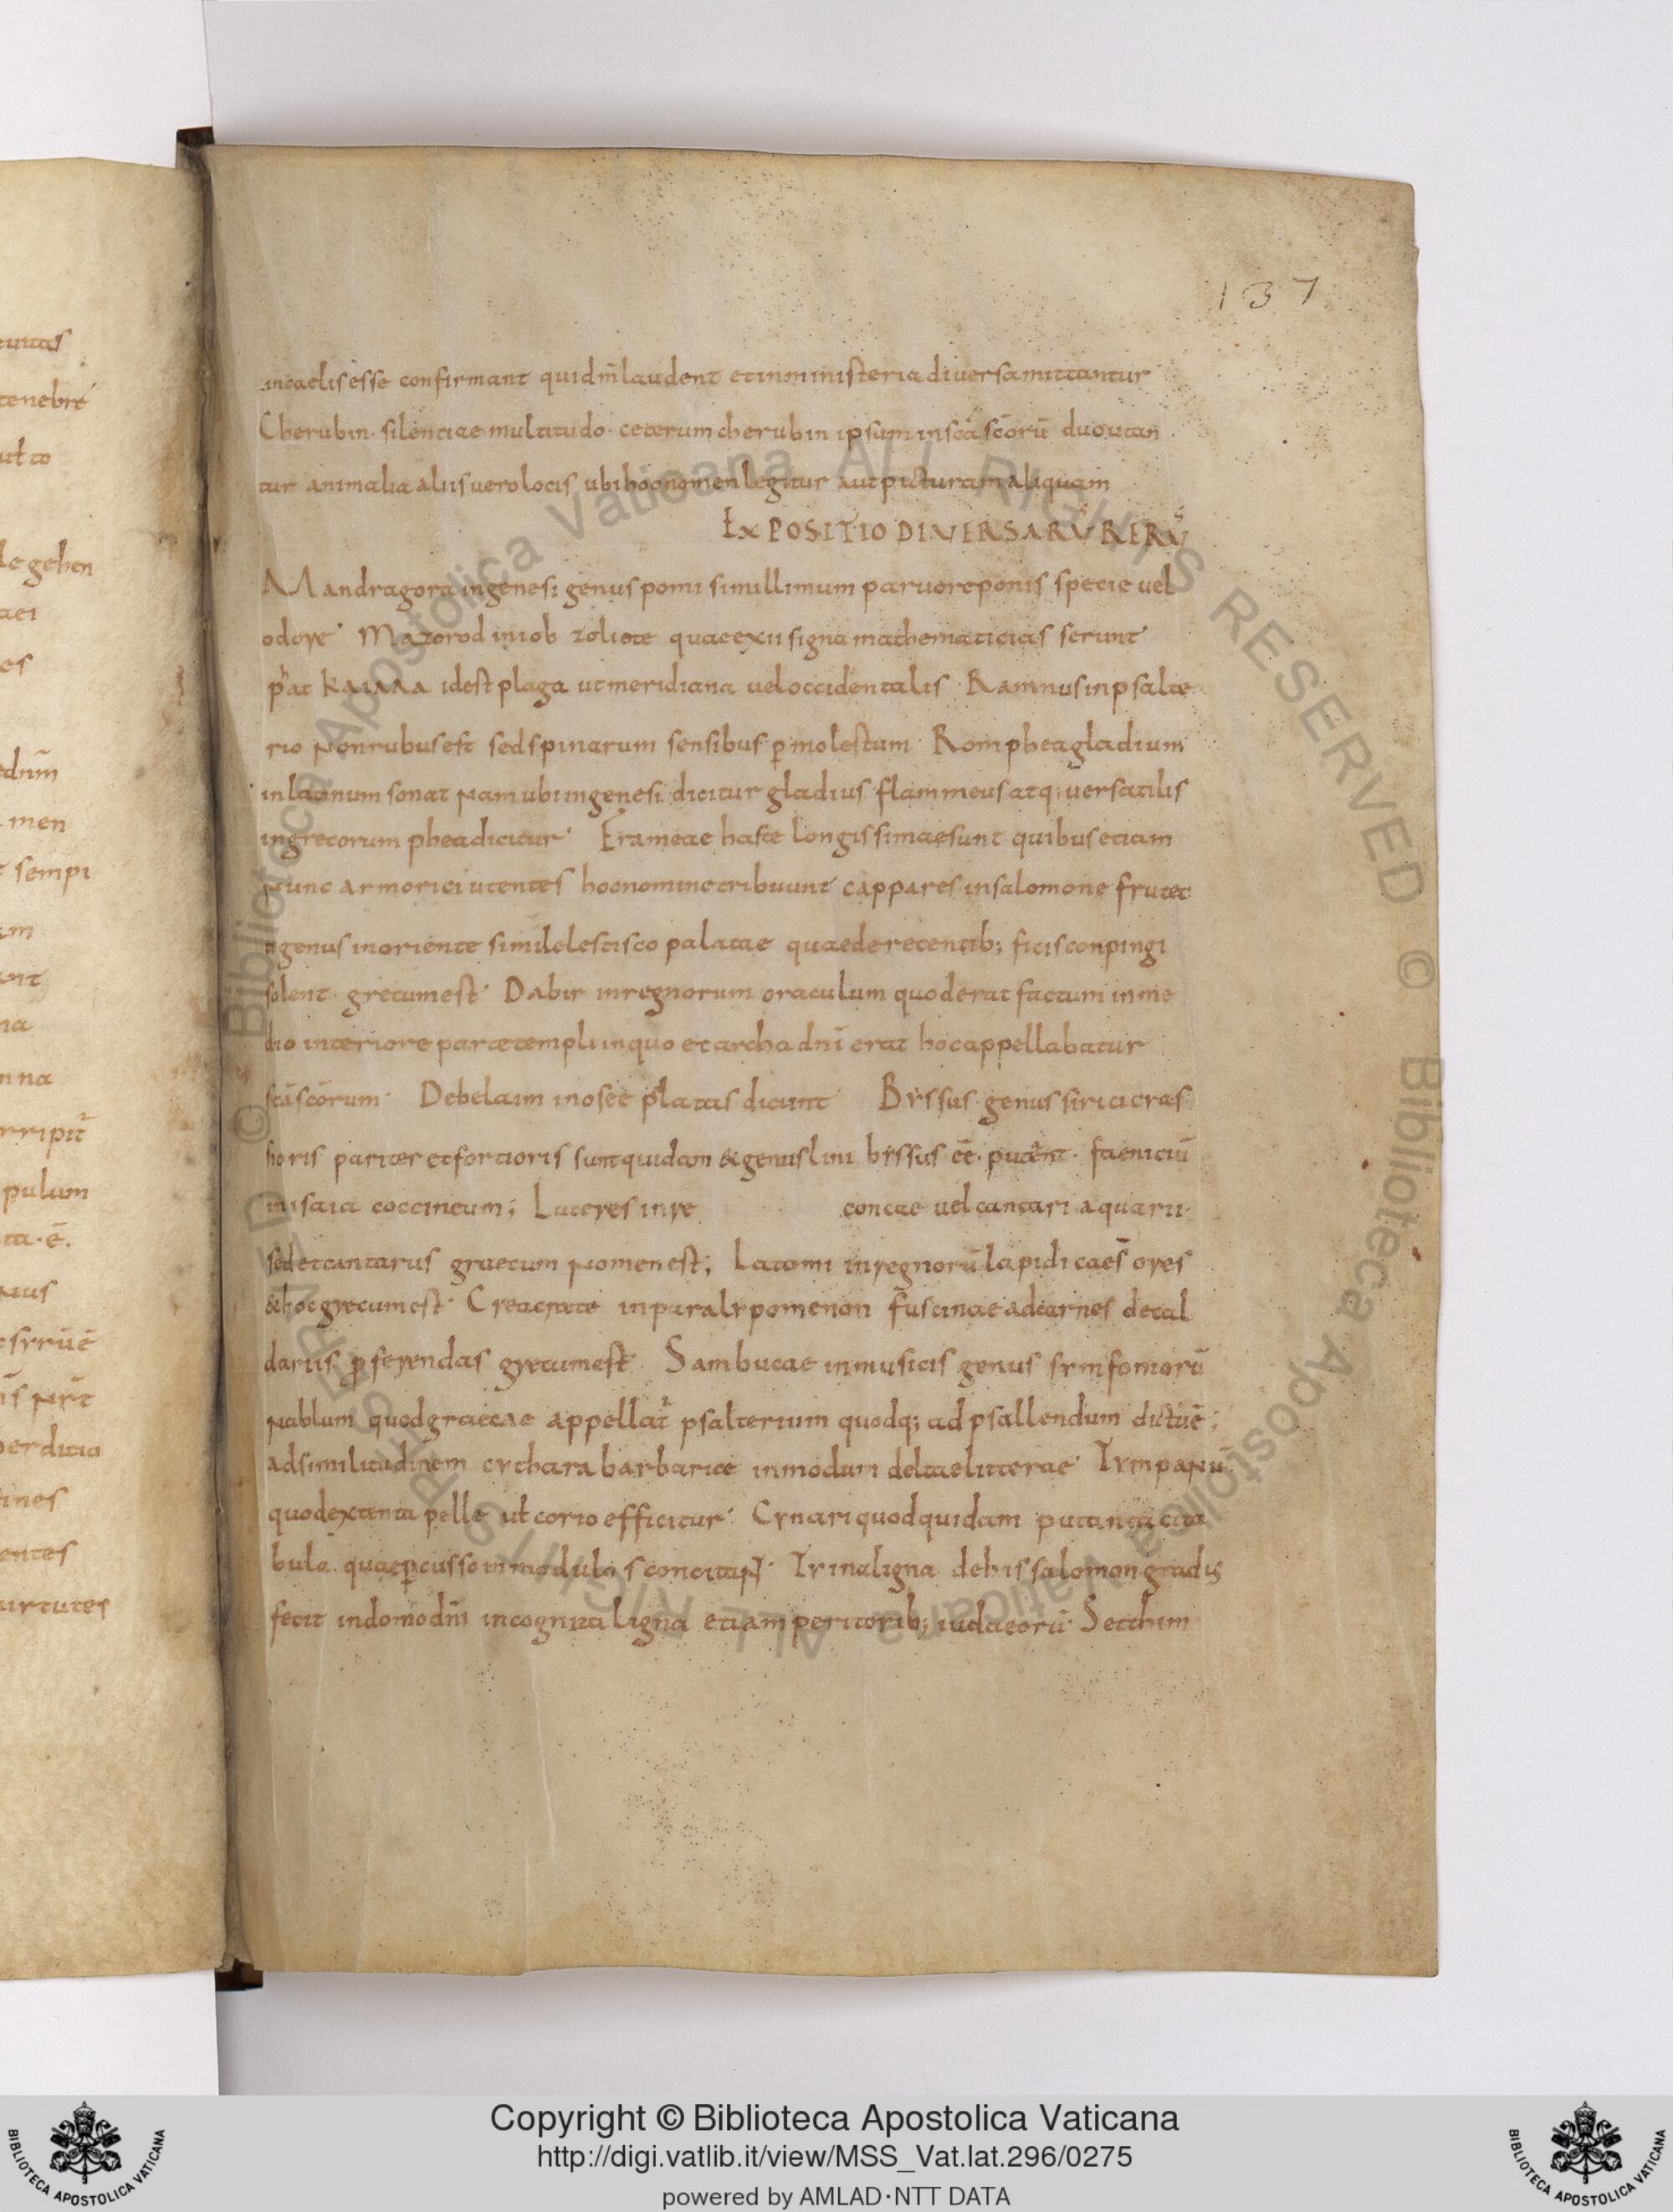 137
in caelis esse confirmant qui dn̄m laudent et in ministeria diversa mittantur
Cherubin · silentiae multitudo · ceterum cherubin ipsum in sc̄a sc̄orū duo
tur animalia aliis vero locis ubi hoc nomen legitur aut picturam aliquam
EXPOSITIO DIVERSARŪ RERŪ
Mandragora in genesi genus pomi simillimum parvo peponis specie vel
odore Mazorod in iob zoliote quae ex ii signa mathematici as serunt
id est plaga ut meridiana vel occidentalis · Ramnus in psalte
rio non rubus est sed spinarum sensibus p̱molestum · Rompheagladium
in latinum sonat nam ubi in genesi dicitur gladius flammeus atq; versatilis
in grecorum phea dicitur · Erameae haste longissimae sunt quibus etiam
nunc armorici utentes hoc nomine tribuunt cappares in salomone frutec
genus in oriente simile lestisco palatae quae de recentib; ficis conpingi
solent · grecum est · Dabir in regnorum oraculum quod erat factum in me
dio interiore parte templi in quo et archa dn̄i erat hoc appellabatur
sc̄a sc̄orum · Debelaim in osee dicunt Byssus · genus sirici cras
horis pariter et fortioris sunt quidam & genus lini byssus eē · putent · faeniciū
in isaia coccineum; Luteres in re concae vel cantari aquarii ·
sed et cantarus graecum nomen est; Latomi in regnorū lapidi caesores
& hoc grecum est · in paralypomenon fuscinae ad carnes de cal
dariis p̱ferendas grecum est · Sambucae in musicis genus symfoniorū
nablum quod graece appellat̄ psalterium quodq; ad psallendum dictū ē;
ad similitudinem cythara barbarice in modum deltae litterae · Tympanū
quod ex tenta pelle ut̄ corio efficitur · Cynari quod quidam putant
bula · quae p̱cusso in modulos · Tyina ligna de his salomon gradis
fecit in domo dn̄i incognita ligna etiam peritorib; iudaeorū · Setthim
Copyright © Biblioteca Apostolica Vaticana
http://digi.vatlib.it/view/MSS_Vat.lat.296/0275
powered by AMLAD·NTT DATA
BIBLIOTECA APOSTOLICA VATICANA
BIBLIOTECA APOSTOLICA VATICANA